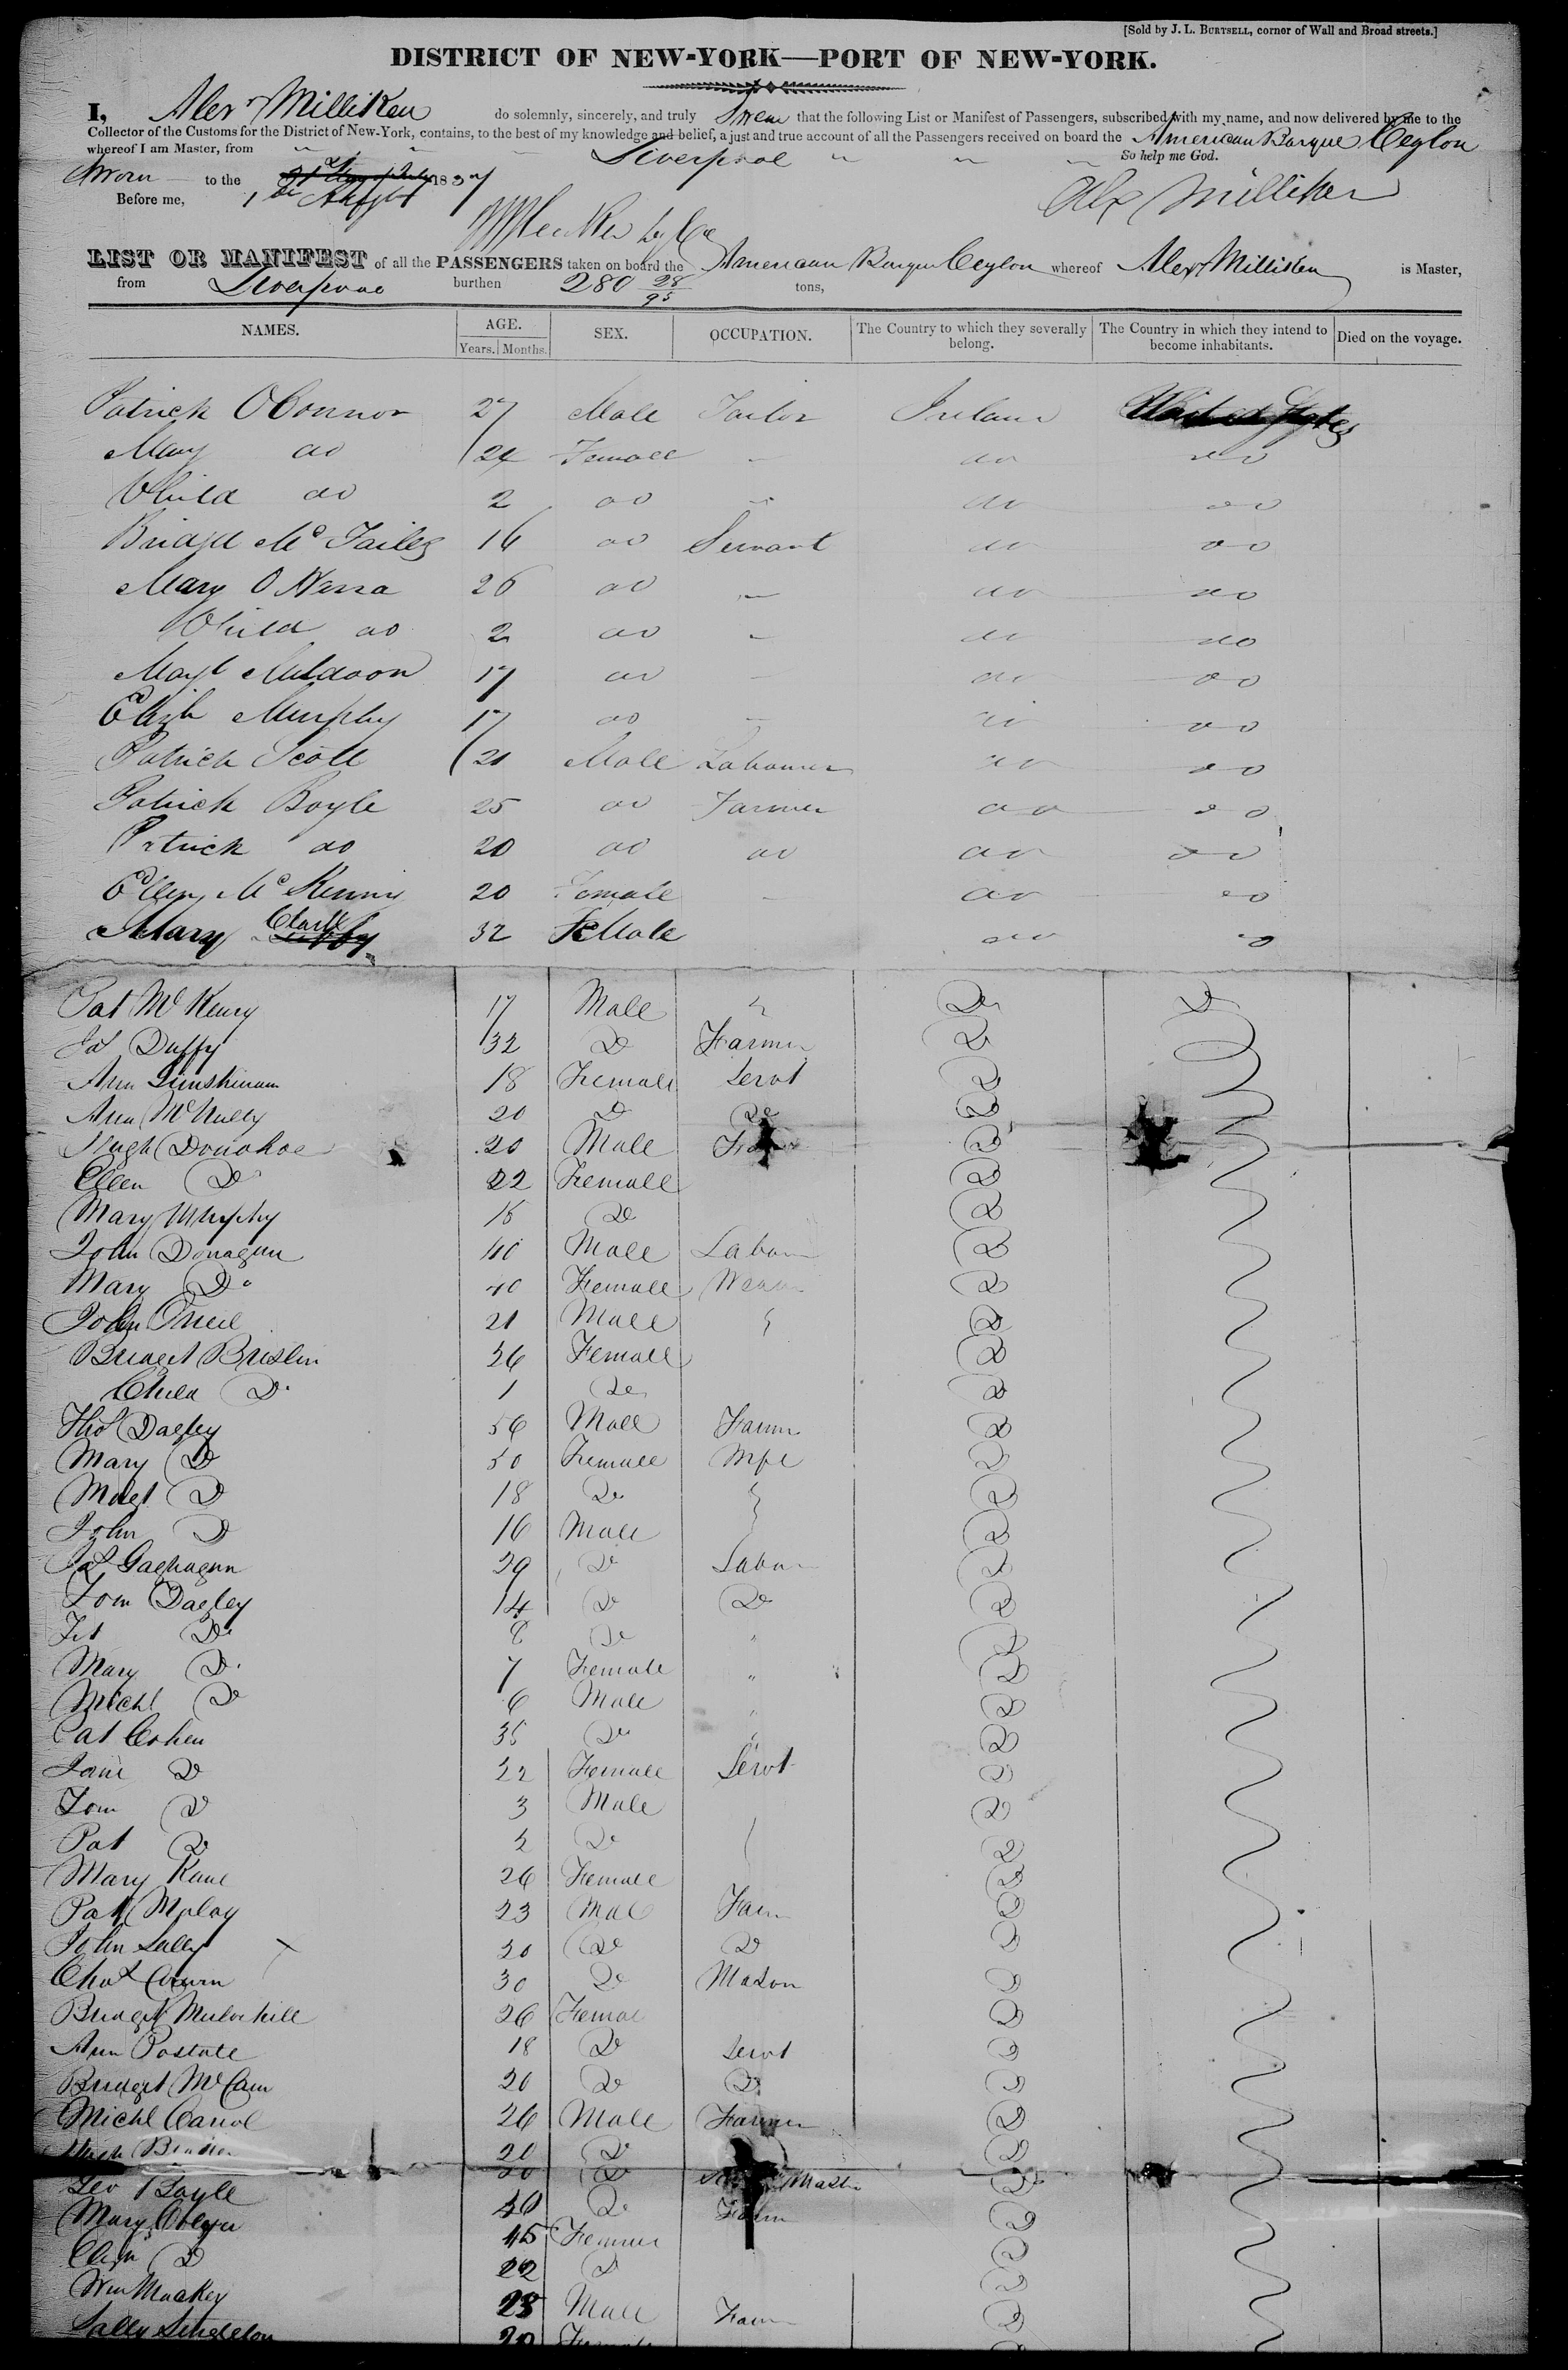 [Sold by J. L. BURTSELL, corner of Wall and Broad streets.]
DISTRICT OF NEW-YORK—PORT OF NEW-YORK.
I, Alexr Milliken do solemnly, sincerely, and truly Swear that the following List or Manifest of Passengers, subscribed with my name, and now delivered by me to the
Collector of the Customs for the District of New-York, contains, to the best of my knowledge and belief, a just and true account of all the Passengers received on board the American Barque Ceylon
whereof I am Master, from Liverpool So help me God.
Sworn to the 1837
Before me, 1 Alex Milliken
LIST OR MANIFEST of all the PASSENGERS taken on board the American Barque Ceylon whereof Alexr Milliken is Master,
from Liverpool burthen 280 28/95 tons,
NAMES. AGE. SEX. OCCUPATION. The Country to which they severally belong. The Country in which they intend to become inhabitants. Died on the voyage.
Years. Months.
Patrick OConnor 27 Male Tailor Ireland United States
Mary do 24 Female - do do
Child do 2 do - do do
Bridget Mc 16 do Servant do do
Mary O 26 do - do do
Child do 2 do - do do
Margt Muldoon 17 do - do do
Elizh Murphy 17 do - do do
Patrick Scott 21 Male Labourer do do
Patrick Boyle 25 do Farmer do do
Patrick do 20 do do do do
Ellen McKenny 20 Female - do do
Mary Clark 32 Female do do
Pat McKenny 17 Male " Do Do
Jas Duffy 32 Do Farmer Do
Ann 18 Female Servt Do
Ann McNully 20 Do Do Do
Hugh Donohoe 20 Male Do
Ellen Do 22 Female Do
Mary Murphy 18 Do Do
John Donagun 40 Male Labour Do
Mary Do 40 Female Do
John Oneil 21 Male Do
Bridget Breslin 26 Female Do
Child Do 1 Do Do
Thos Dagley 56 Male Farmr Do
Mary Do 50 Female Wife Do
Margt Do 18 Do Do
John Do 16 Male Do
Jas Gaghagun 29 Do Labour Do
Tom Dagley 14 Do Do Do
Do 8 Do " Do
Mary Do 7 Female " Do
Michl Do 6 Male " Do
Pat Cohen 35 Do " Do
Jane Do 22 Female Servt Do
Tom Do 3 Male Do
Pat Do 2 Do Do
Mary Kane 26 Female Do
Pat 23 Male Farm Do
John Lally 20 Do Do Do
Chas 30 Do Mason Do
Bridget Mulvihill 26 Female Do
Ann 18 Do Servt Do
Bridget McCann 20 Do Do Do
Michl Carrol 26 Male Farmer Do
Hugh 20 Do
Geo Boyle 40 Do Farm Do
Mary 45 Female Do
Elizh Do 22 Do Do
Wm Mackey 23 Male Farm Do
Sally Singleton 20 Female